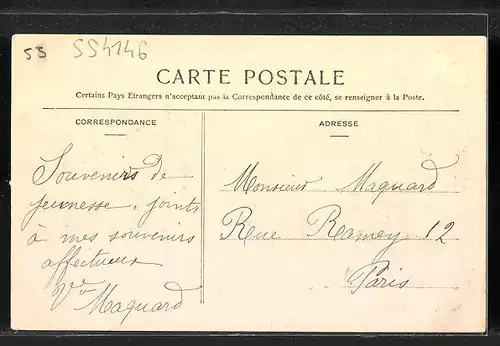 55
554146
CARTE POSTALE
Certains Pays Etrangers n'acceptant pas la Correspondance de ce côté, se renseigner à la Poste.
CORRESPONDANCE
Souvenirs de
jeunesse, joints
à mes souvenirs
affectueux
Vve Maquard
ADRESSE
Monsieur Maquard
Rue Ramey 12
Paris